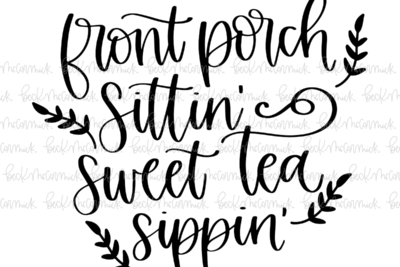 front porch
sittin'
sweet tea
sippin'